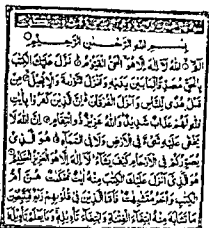 بسم الله الرحمن الرحيم
الم الله لا إله إلا هو الحي القيوم نزل عليك الكتب
بالحق مصدقا لما بين يديه وأنزل التورىة والإنجيل من
قبل هدى للناس وأنزل الفرقان إن الذين كفروا بآيت
الله لهم عذاب شديد والله عزيز ذو انتقام إن الله لا
يخفى عليه شيء في الأرض ولا في السماء هو الذي
يصوركم في الأرحام كيف يشاء لا إله إلا هو العزيز الحكيم
هو الذي أنزل عليك الكتب منه آيت محكمت هن أم
الكتب وأخر متشبهت فأما الذين في قلوبهم زيغ فيتبعون
ما تشبه منه ابتغاء الفتنة وابتغاء تأويله وما يعلم تأويله